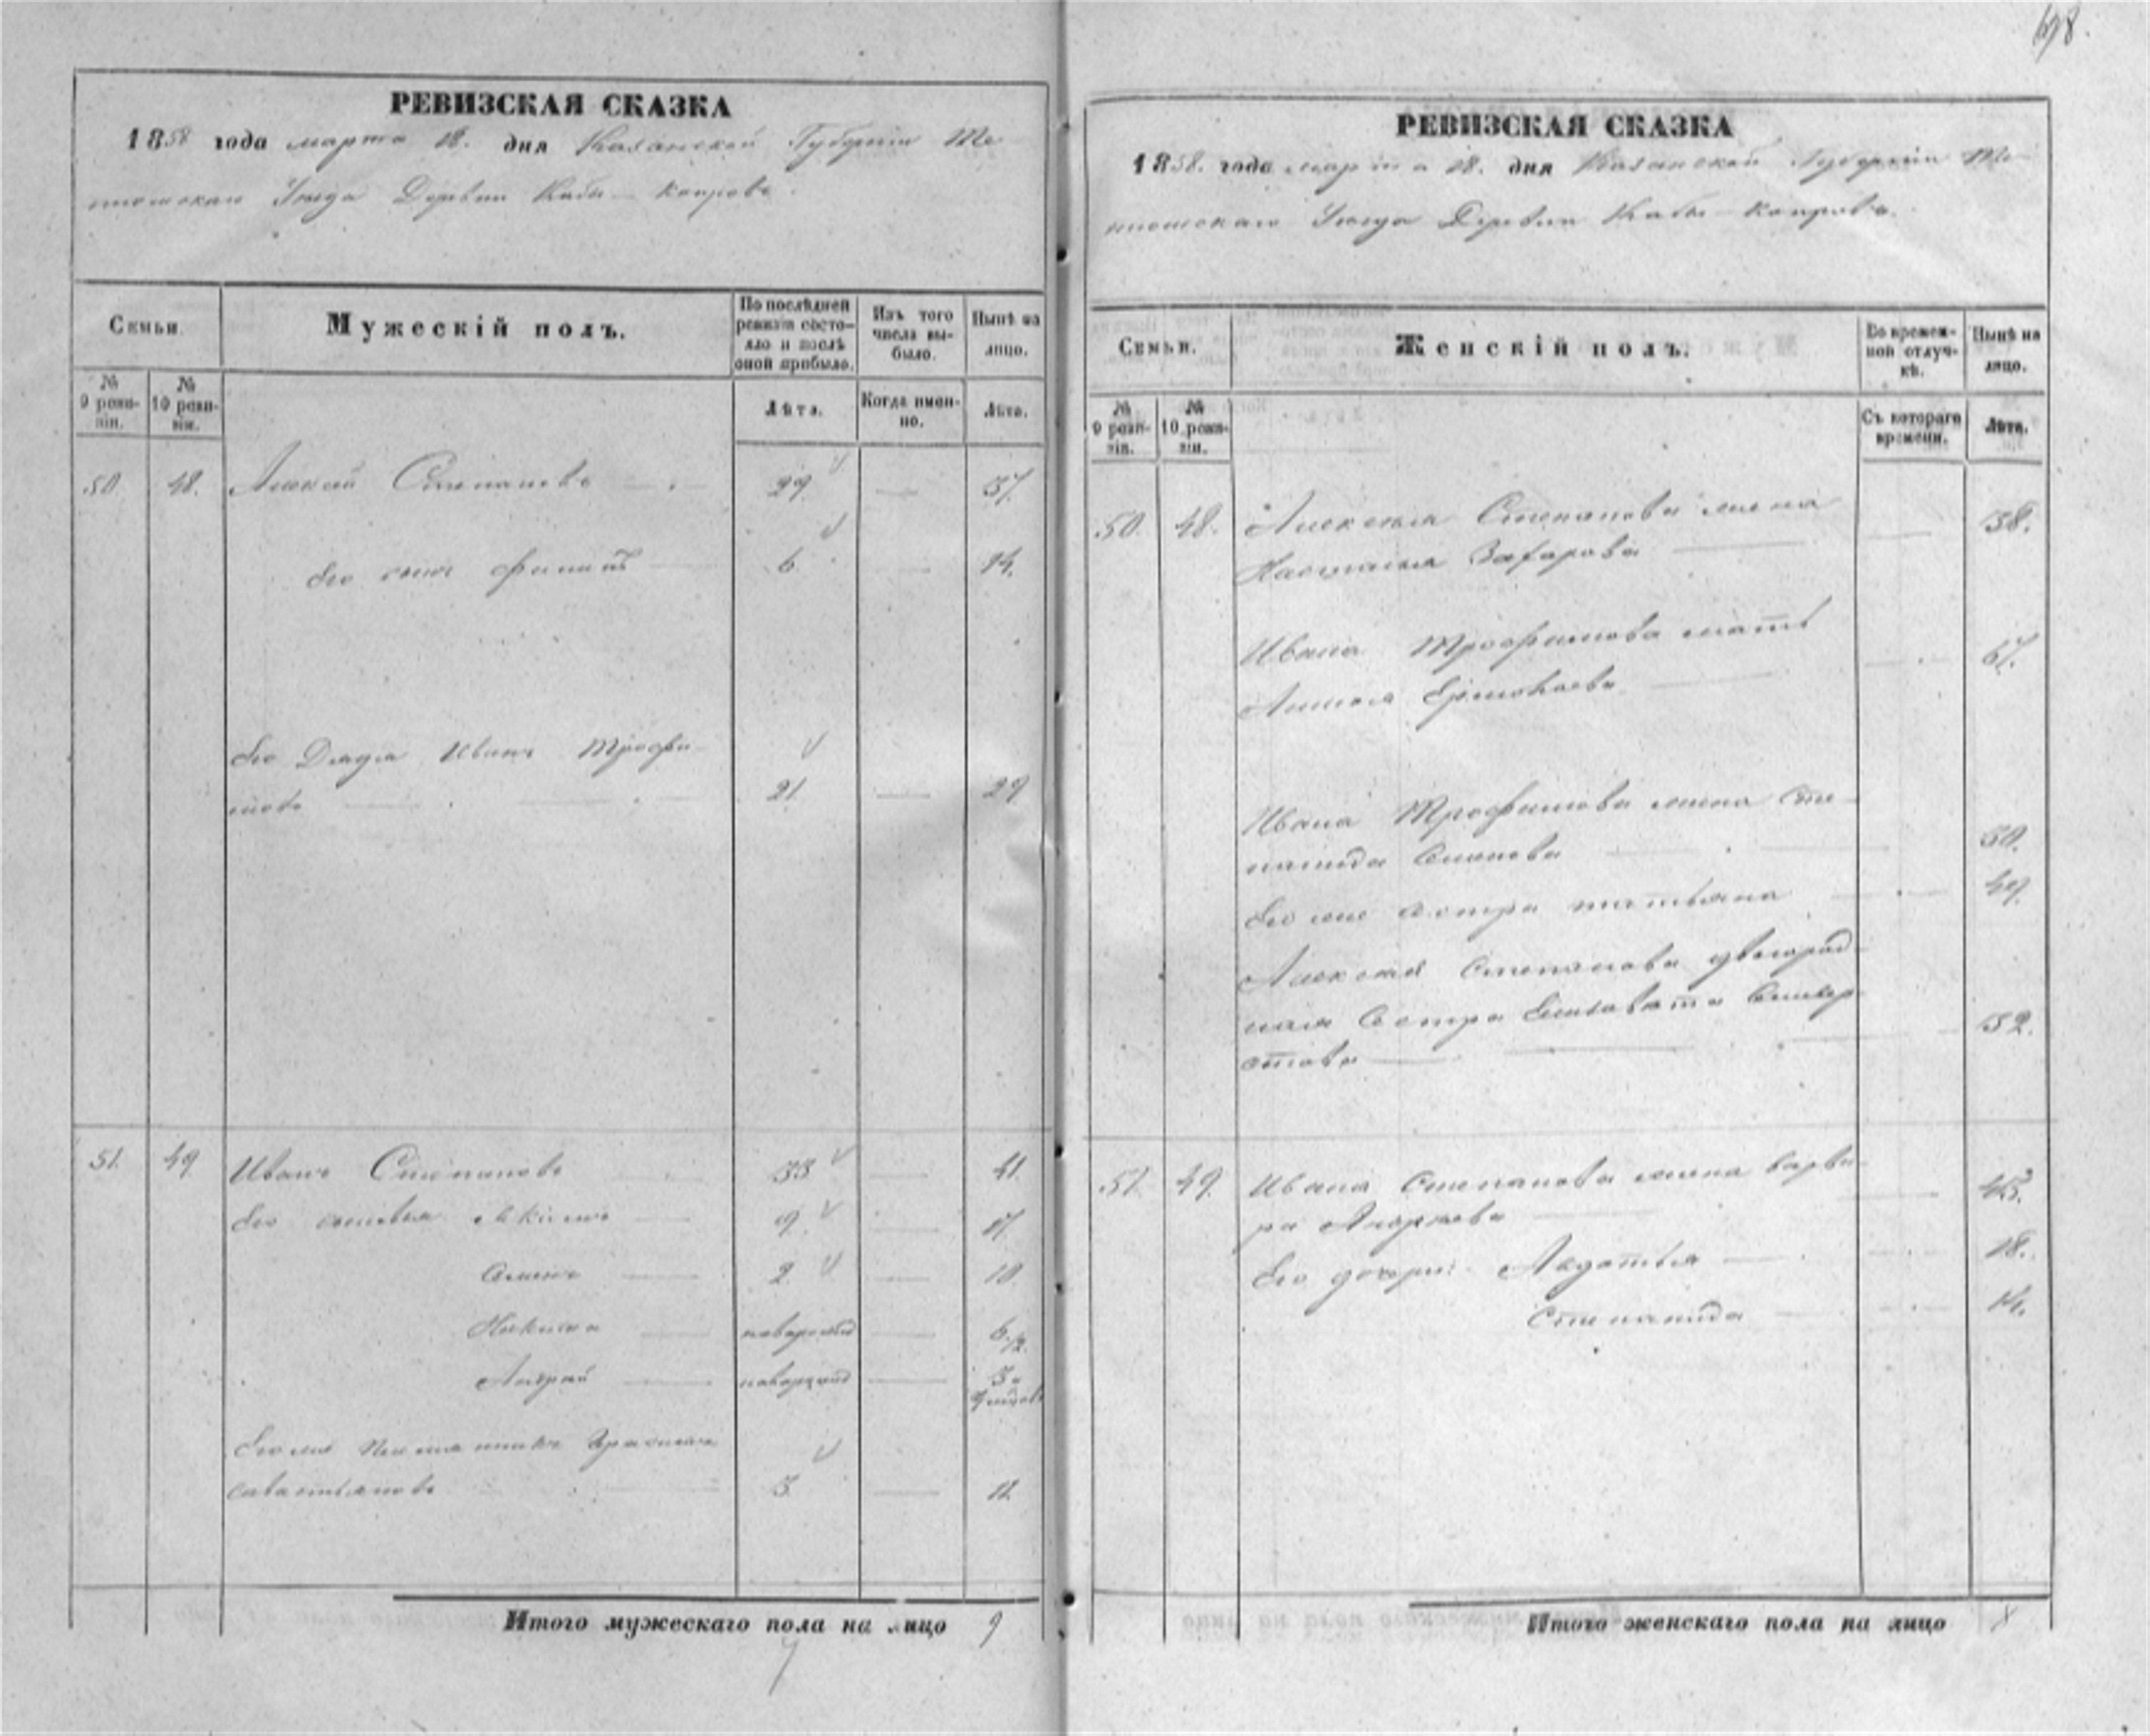 698.
РЕВИЗСКАЯ СКАЗКА
1858 года марта 18. дня Казанской Губернiи Те
тюшскаго Уезда Деревни Кабы-Копрова.
Семьи.
Мужескiй полъ.
По послѣдней ревизiи состояло и послѣ оной прибыло.
Изъ того числа выбыло.
Нынѣ на лицо.
№ 9 ревизiи.
№ 10 ревизiи.
Лѣта.
Когда именно.
Лѣта.
50 48. Алексей Степановъ 29 37.
Его сынъ Филипъ 6 14.
Его Дядя Иванъ Трофи
мовъ 21 29
51. 49 Иванъ Степановъ 33 41.
Его сыновья 9. 17.
Семенъ 2 10
Никита новорожд 6 1/2
Андрей новорожд 3
Его же Племянникъ
Савастьяновъ 3 11.
Итого мужескаго пола на лицо 9
РЕВИЗСКАЯ СКАЗКА
1858. года марта 18. дня Казанской Губернiи Те
тюшскаго Уезда Деревни Кабы-Копрова.
Семьи.
Женскiй полъ.
Во временной отлучкѣ.
Нынѣ на лицо.
№ 9 ревизiи.
№ 10 ревизiи.
Съ котораго времени.
Лѣта.
50. 48. Алексея Степанова жена
Настасья Захарова 38.
Ивана Трофимова мать
67.
Ивана Трофимова жена Сте
панида Семенова 30.
Его же сестра татьяна 49.
Алексея Степанова двоюрод
ная Сестра Елизавета Селивер
стова 32.
51. 49. Ивана Степанова жена варва
ра Андреева 43.
Его дочери: Авдотья 18.
Степанида 14.
Итого женскаго пола на лицо